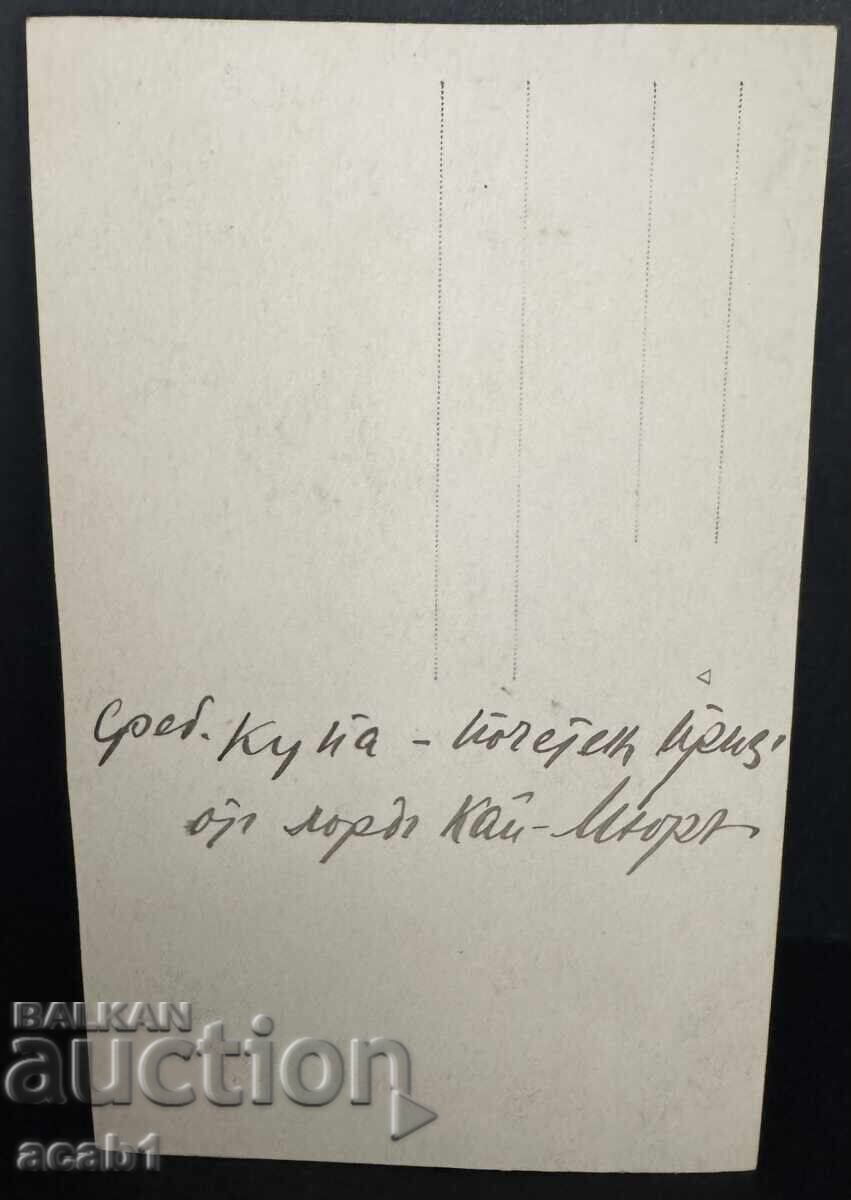 Среб. Купа - почетен приз
от лорд Кай-Мюорт
BALKAN
auction
acab1